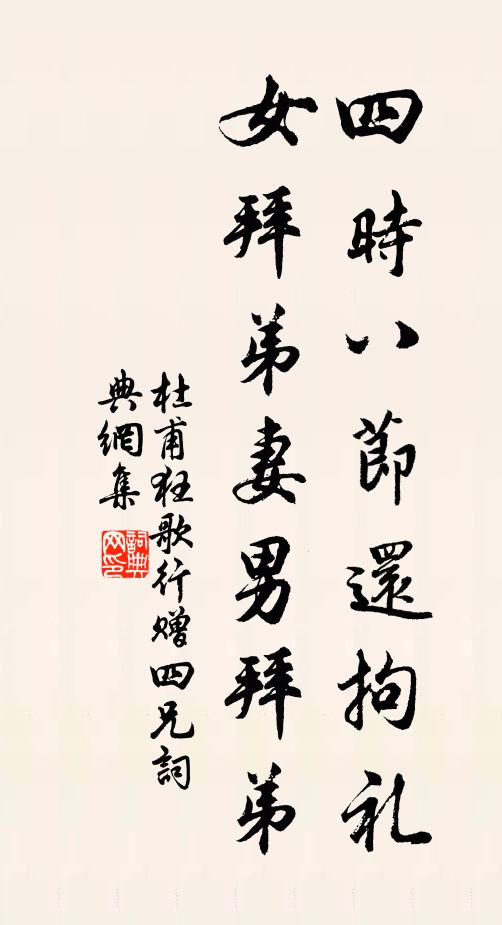 四時八節還拘礼
女拜弟妻男拜弟
杜甫狂歌行贈四兄詞
典網集
詞典
网印